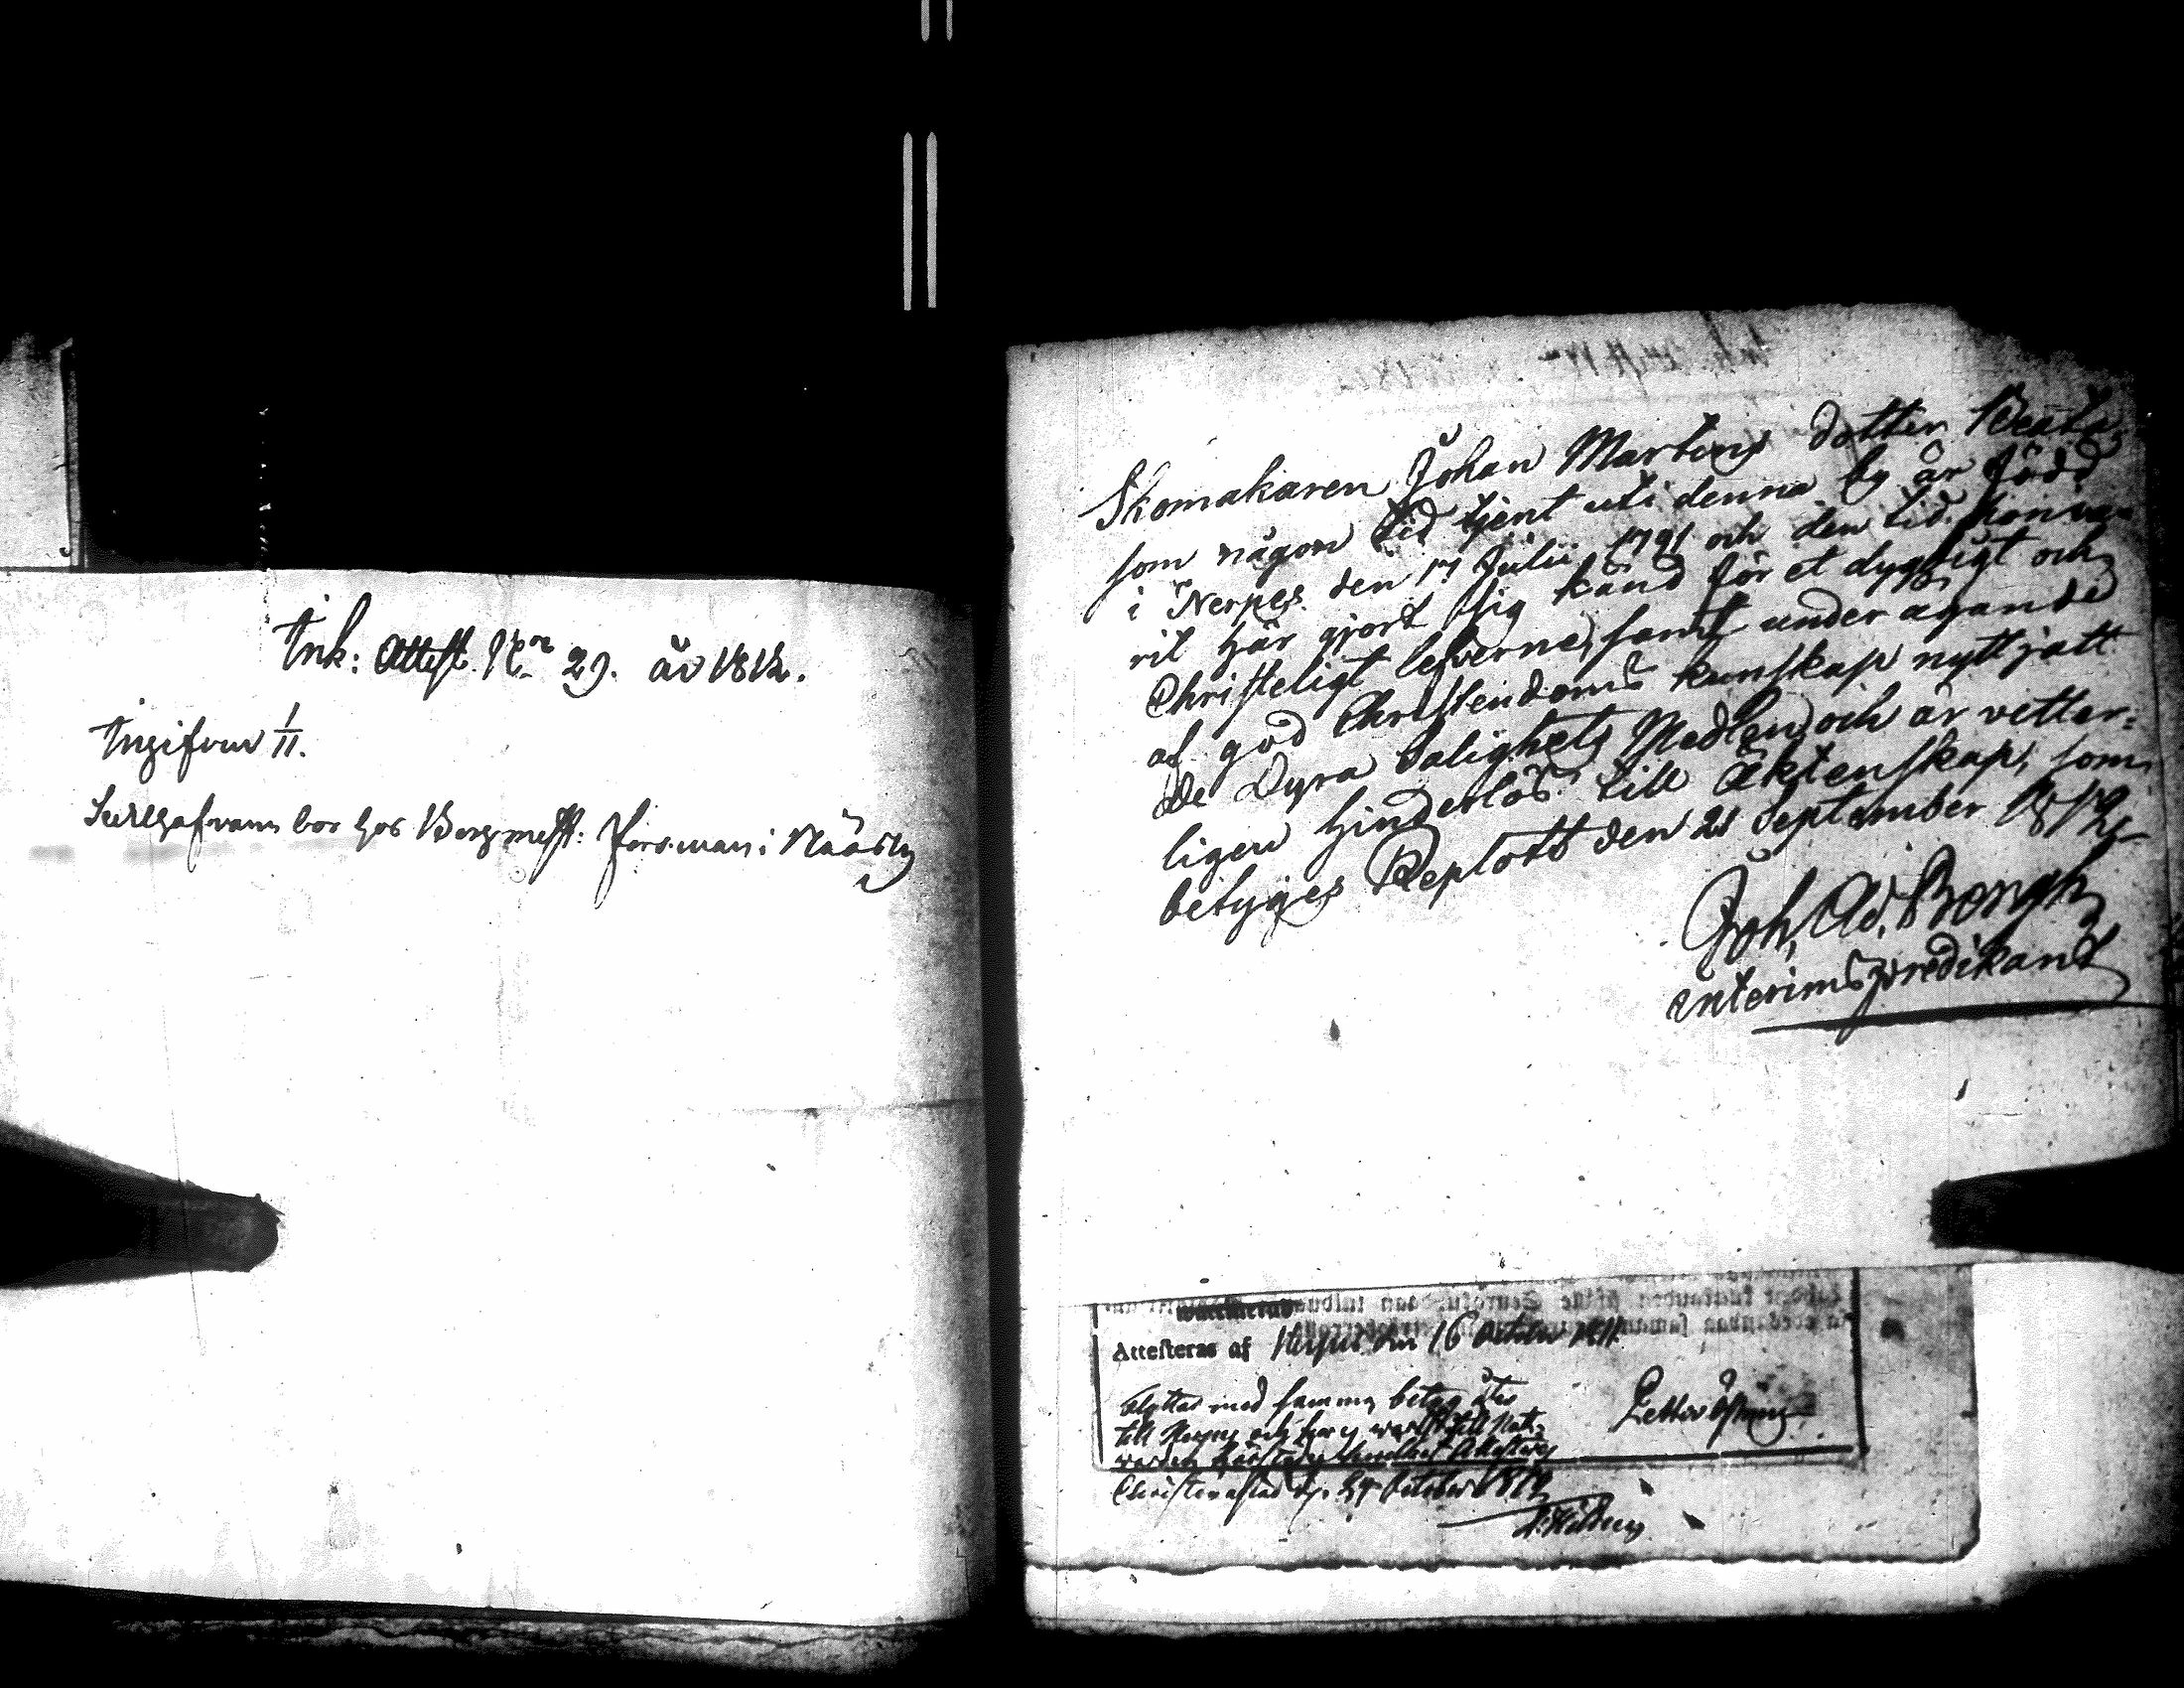 Ink: Attest. N:o 29. år 1812.
Ingifven 1/11.
bor hos Borgmest: Forsman i Näsby
Skomakaren Johan Martens dotter Beata
som någon tid tjent uti denna by är född
i Nerpes den 17 Julii 1791 och den tid hon va-
rit här gjort sig känd för et dygdigt och
Christeligt lefverne, samt under ägande
af god Christendoms kunskap nyttjatt
de Dyra Salighets Medlen, och är vetter=
ligen hinderlös till Äktenskap, som
betyges Replott den 21 September 1812
Joh, Ad. Bergh
interimspredikant
Attesteras af Nerpes den 16 October 1811
Flyttar med samma betyg åter
till Nerpes och har ej
Christinæstad d. 29 October 1812